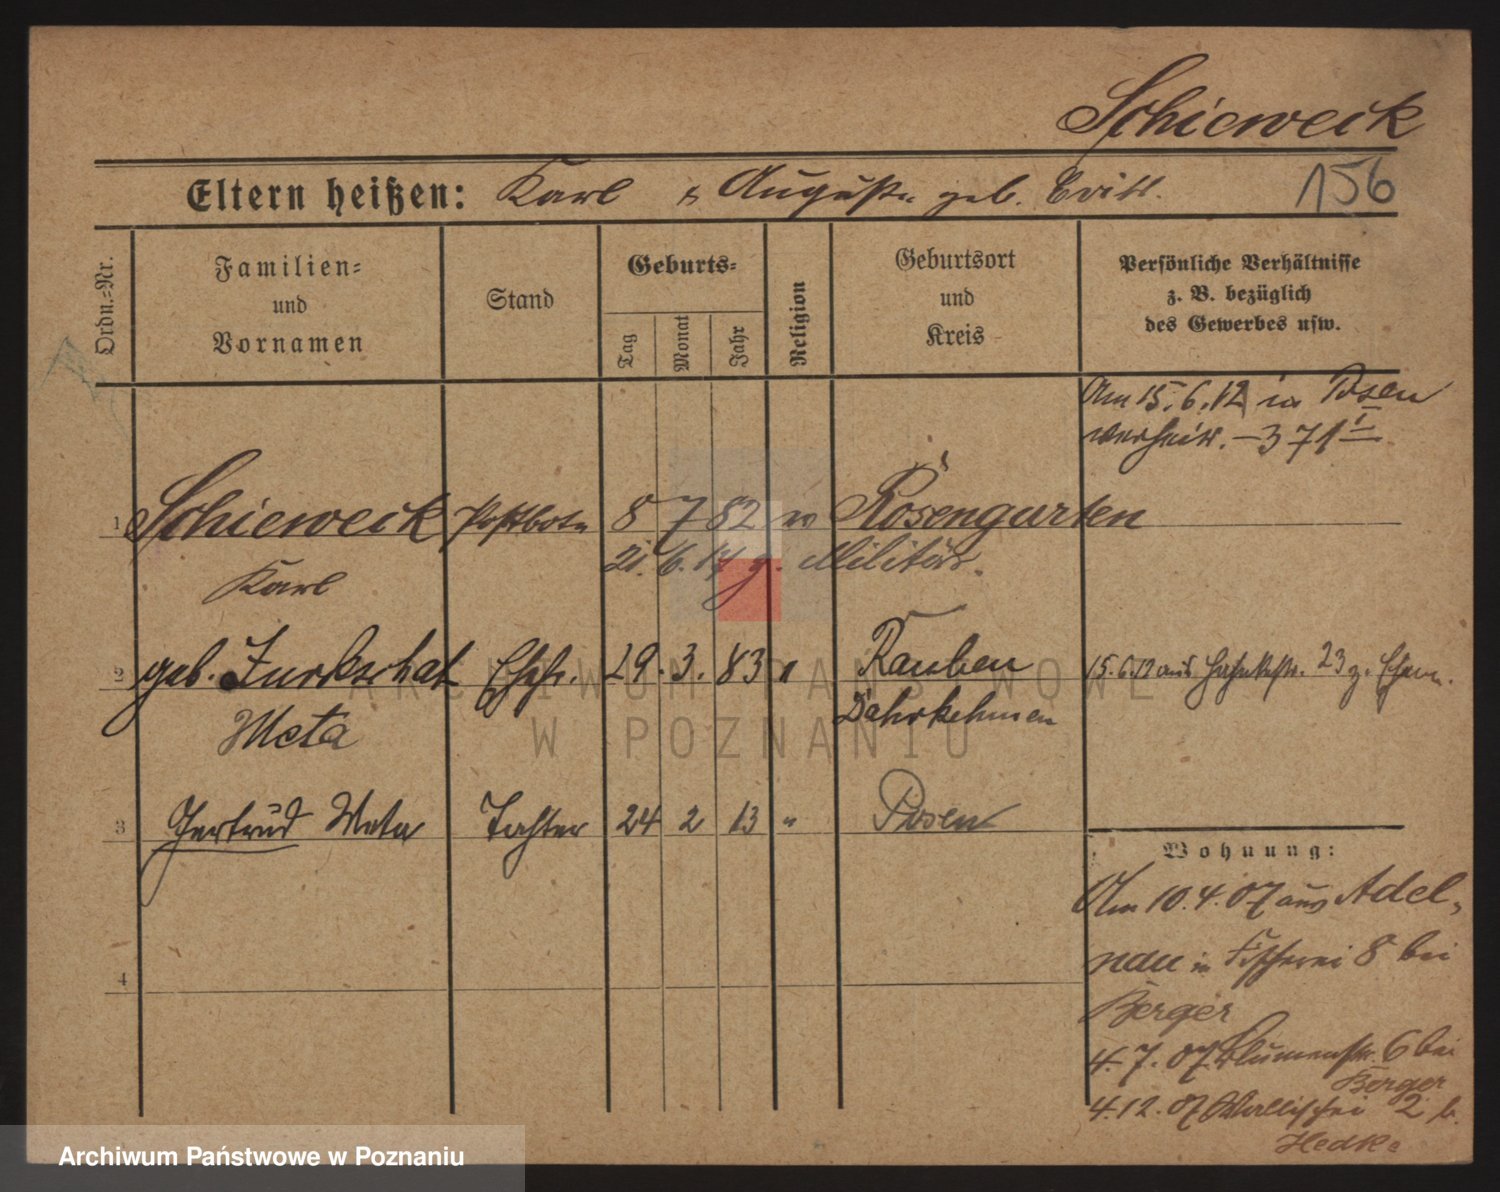 Schieweck
Eltern heißen: Karl & Auguste geb.
156
Ordn.=Nr.
Familien=
und
Vornamen
Stand
Geburts=
Tag
Monat
Jahr
Religion
Geburtsort
und
Kreis
Persönliche Verhältnisse
z. B. bezüglich
des Gewerbes usw.
Am 15.6.12 in Posen
verheir. – 371 I
1 Schieweck Postbote 8 7 82 Rosengarten
21.6.17 z. Militär.
Karl
2 geb. Zurkschat Ehefr. 29. 3. 83 " Rauben
15.6.12 aus 23 z. Ehem.
Meta Dahrkehmen
3 Gertrud Meta Tochter 24 2 13 " Posen
4
Wohnung:
Am 10.4.07 aus Adel=
nau in Fischerei 8 bei
Berger
4.7.07 Blumenstr. 6 bei
Berger
4.12.07 Wallischei 2 b.
Hedke
ARCHIWUM PAŃSTWOWE
W POZNANIU
Archiwum Państwowe w Poznaniu